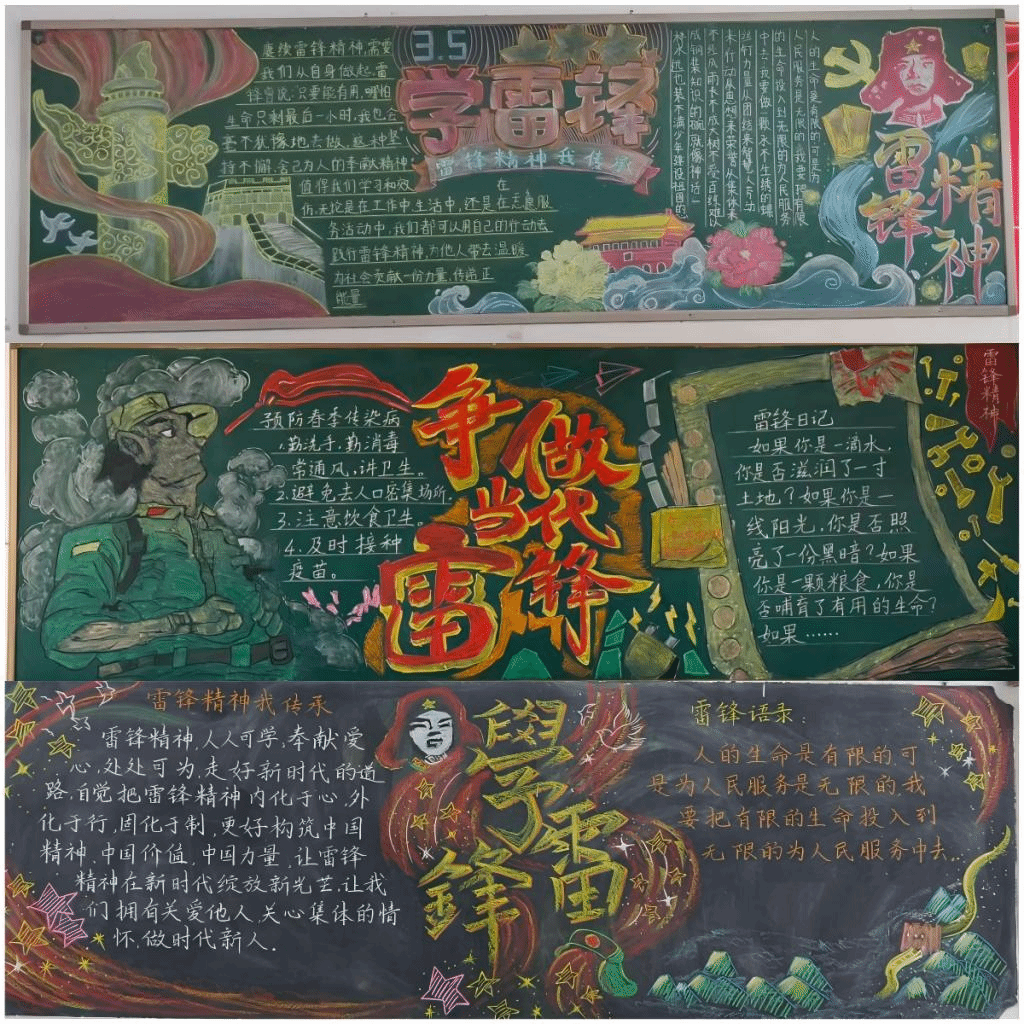 赓续雷锋精神,需要
我们从自身做起,雷
锋曾说:只要能有用,哪怕
生命只剩最后一小时,我也会
毫不犹豫地去做。这种坚
持不懈,舍己为人的奉献精神
值得我们学习和效
在
仿,无论是在工作中,生活中,还是在志愿服
务活动中,我们都可以用自己的行动去
践行雷锋精神,为他人带去温暖
为社会贡献一份力量,传递正
能量
3.5
学雷锋
雷锋精神我传承
人的生命是有限的,可是为
人民服务是无限的,我要把有限
的生命投入到无限的为人民服务
中去
雷锋
精神
预防春季传染病
1.勤洗手,勤消毒
常通风,讲卫生。
2.避免去人口密集场所.
3.注意饮食卫生。
4.及时接种
疫苗。
争做
当代
雷锋
雷锋日记
如果你是一滴水,
你是否滋润了一寸
土地?如果你是一
线阳光,你是否照
亮了一份黑暗?如果
你是一颗粮食,你是
否哺育了有用的生命?
如果……
雷锋精神
雷锋精神我传承
雷锋精神,人人可学,奉献爱
心,处处可为,走好新时代的道
路,自觉把雷锋精神内化于心、外
化于行,固化于制,更好构筑中国
精神、中国价值,中国力量,让雷锋
精神在新时代绽放新光芒,让我
们拥有关爱他人、关心集体的情
怀,做时代新人.
學雷鋒
雷锋语录:
人的生命是有限的可
是为人民服务是无限的,我
要把有限的生命投入到
无限的为人民服务中去..